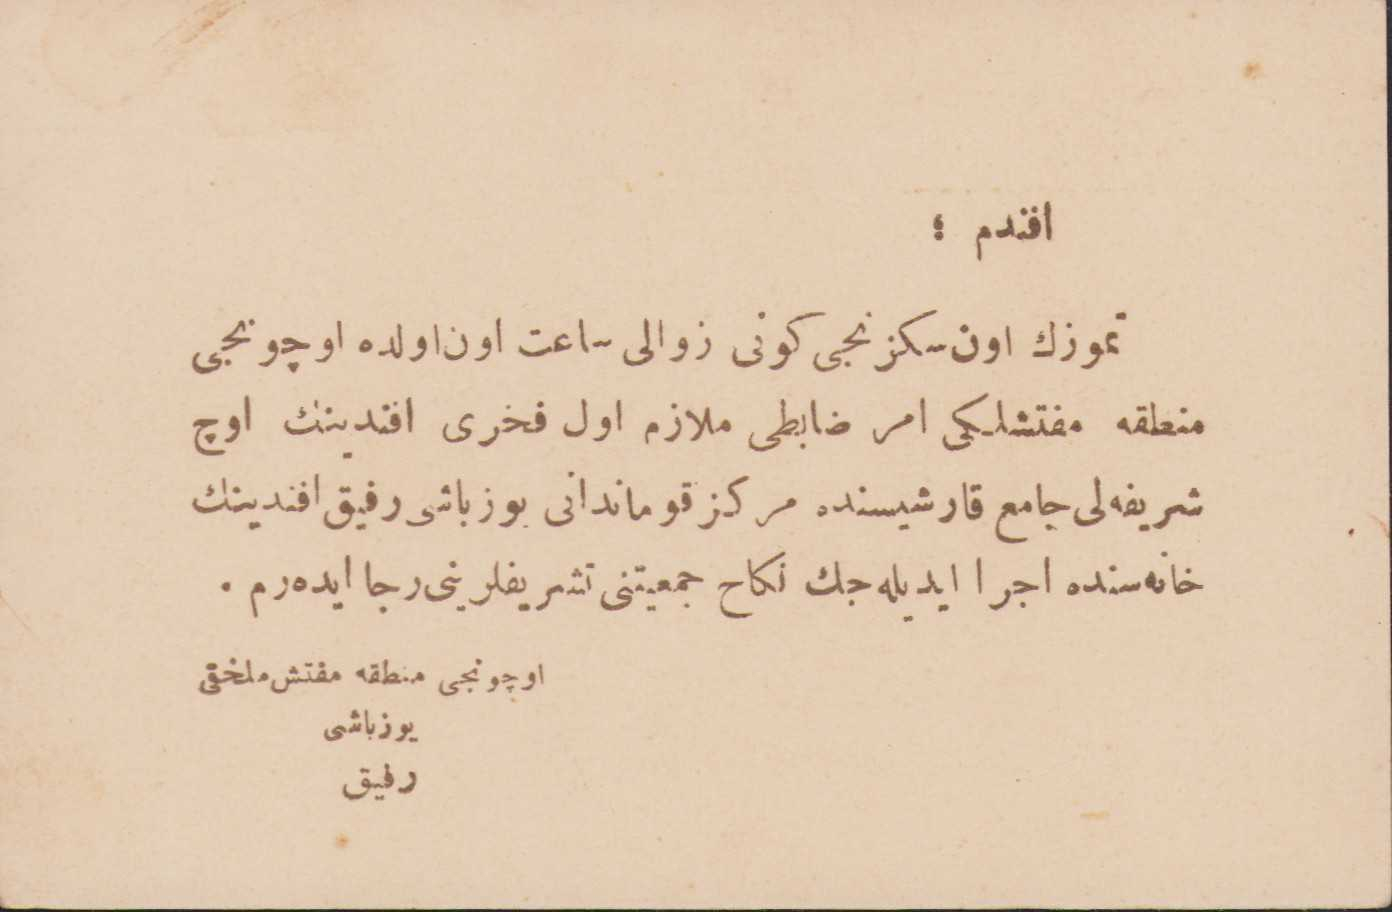 افندم ؛
تموزك اون سكزنجی كونی زوالی ساعت اون اولده اوچونجی
منطقه مفتشلكی امر ضابطی ملازم اول فخری افندینك اوچ
شریفه‌لی جامع قارشیسنده مركز قوماندانی یوزباشی رفیق افندینك
خانه‌سنده اجرا ایدیله‌جك نكاح جمعیتنی تشریفلرینی رجا ایده‌رم .
اوچونجی منطقه مفتش ملحقی
یوزباشی
رفیق